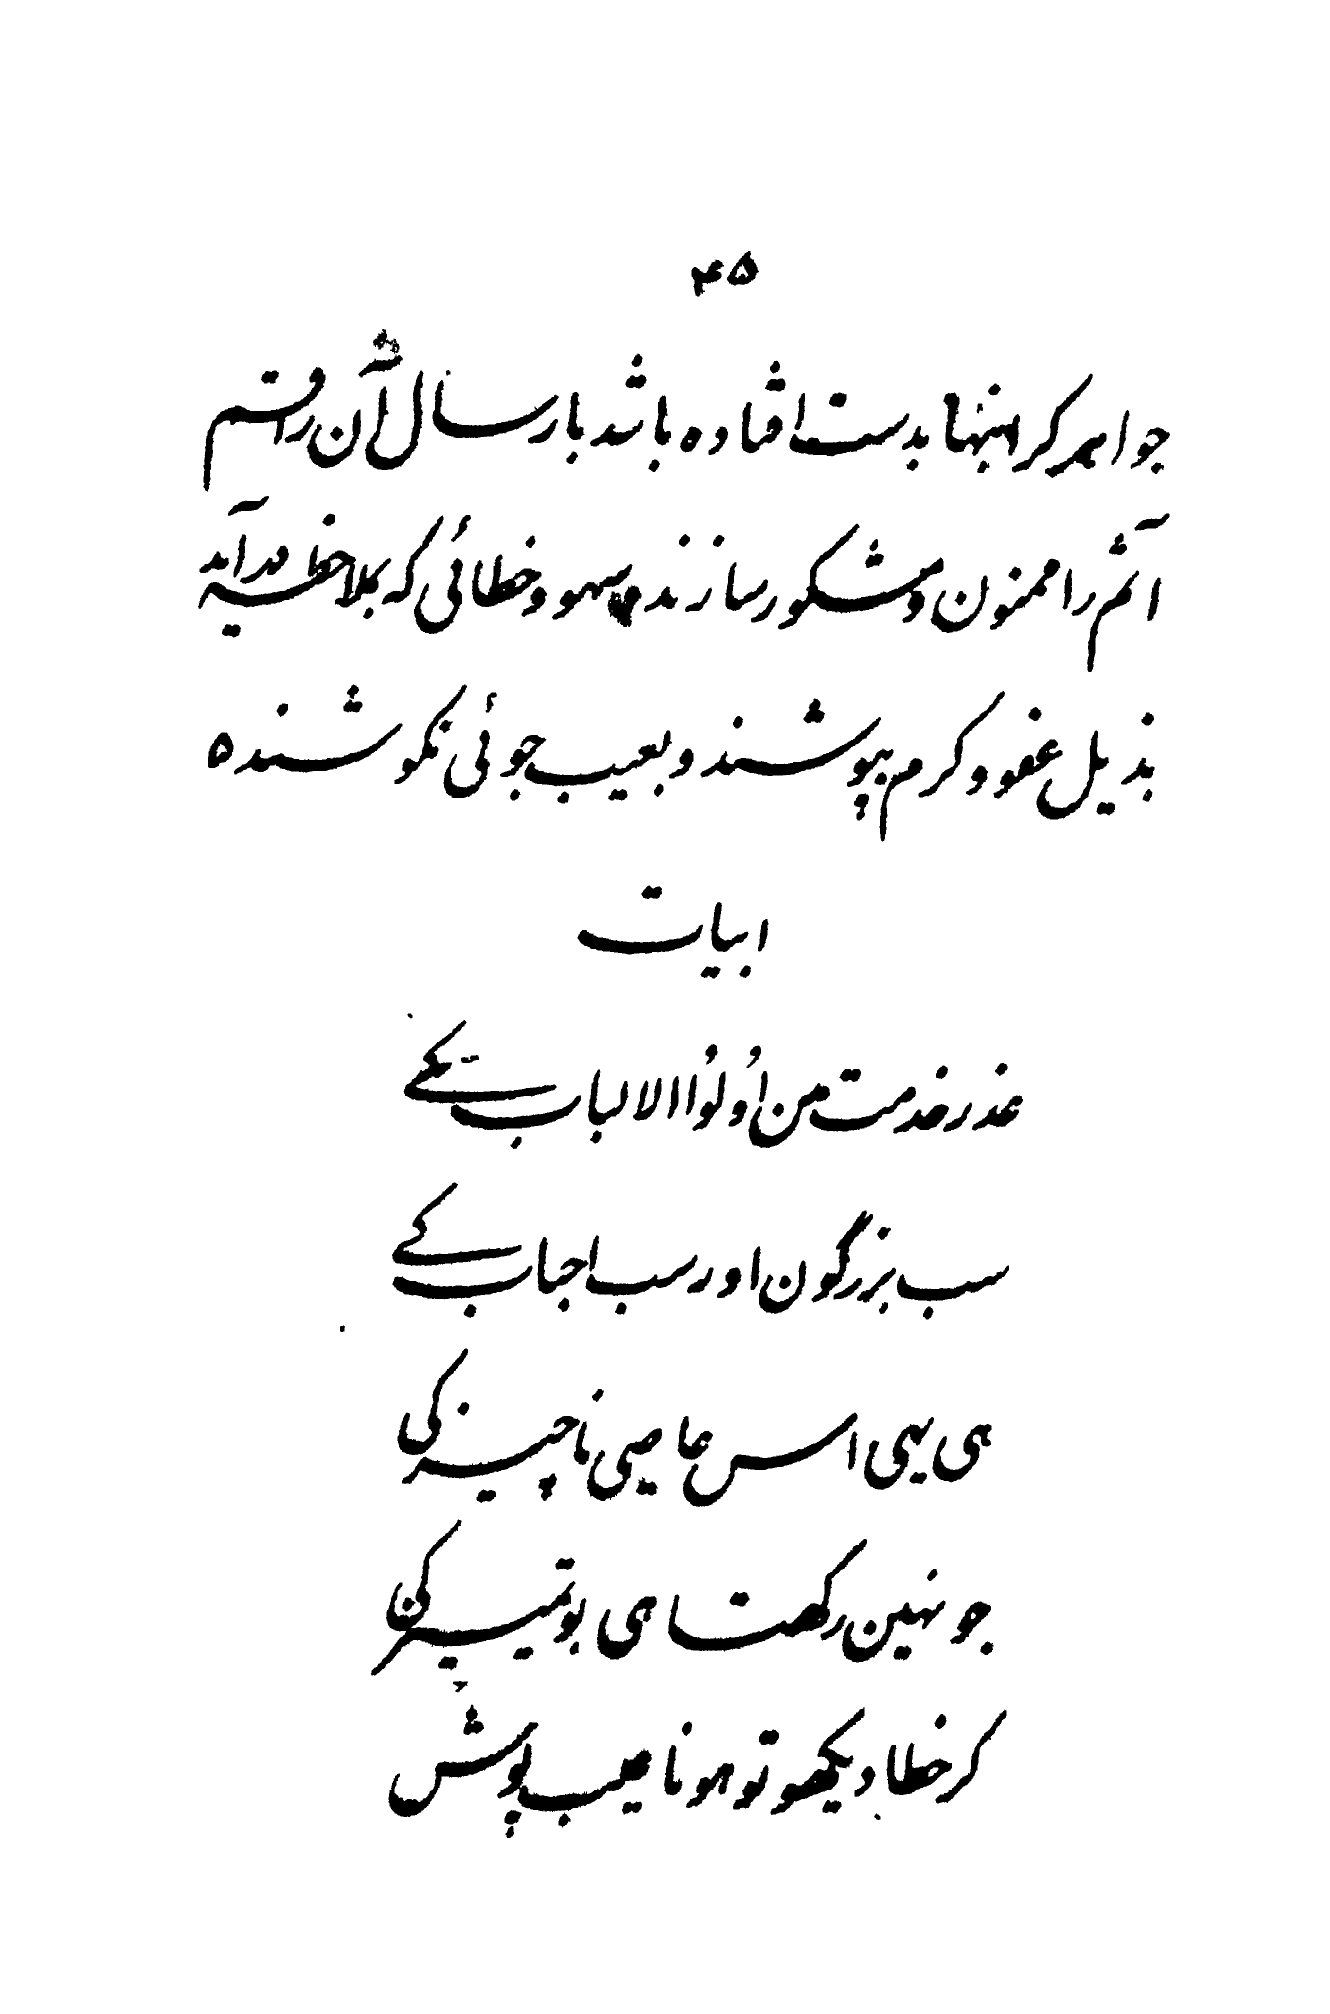 ۴۵
جواهر کر اینها بدست افتاده باشد بارسال آن راقم
اثم را ممنون و مشکور سازند و سهو و خطائی که بملاحظه درآید
بذیل عفو و کرم بپوشند و بعیب جوئی نکوشند ه
ابیات
عذر خدمت من اُولُوا الالباب کے
سب بزرگون اور سب احباب کے
ہی یہی اس عاصی ناچیز کی
جو نہین رکھتا ہی بو تمیز کن
کر خطا دیکھو تو ہونا عیب پوش